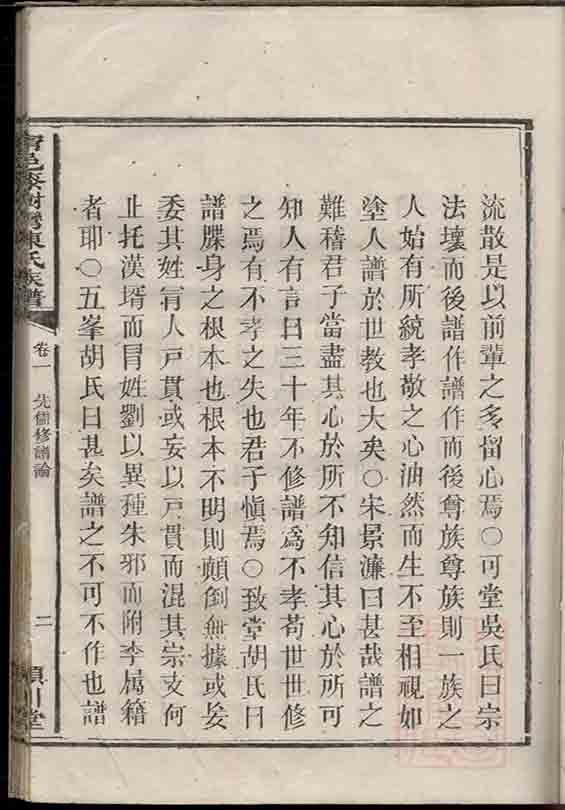 流散是以前輩之多留心焉○可堂吳氏曰宗
法壞而後譜作譜作而後尊族尊族則一族之
人始有所統孝敬之心油然而生不至相視如
塗人譜於世教也大矣○宋景濂曰甚哉譜之
難稽君子當盡其心於所不知信其心於所可
知人有言曰三十年不修譜爲不孝苟世世修
之焉有不孝之失也君子愼焉○致堂胡氏曰
譜牒身之根本也根本不明則顛倒無據或妄
委其姓冐人戸貫或妄以戸貫而混其宗支何
止托漢壻而冐姓劉以異種朱邪而附李属籍
者耶○五峯胡氏曰甚矣譜之不可不作也譜
陳氏族譜
卷一 先儒修譜論
二
川堂